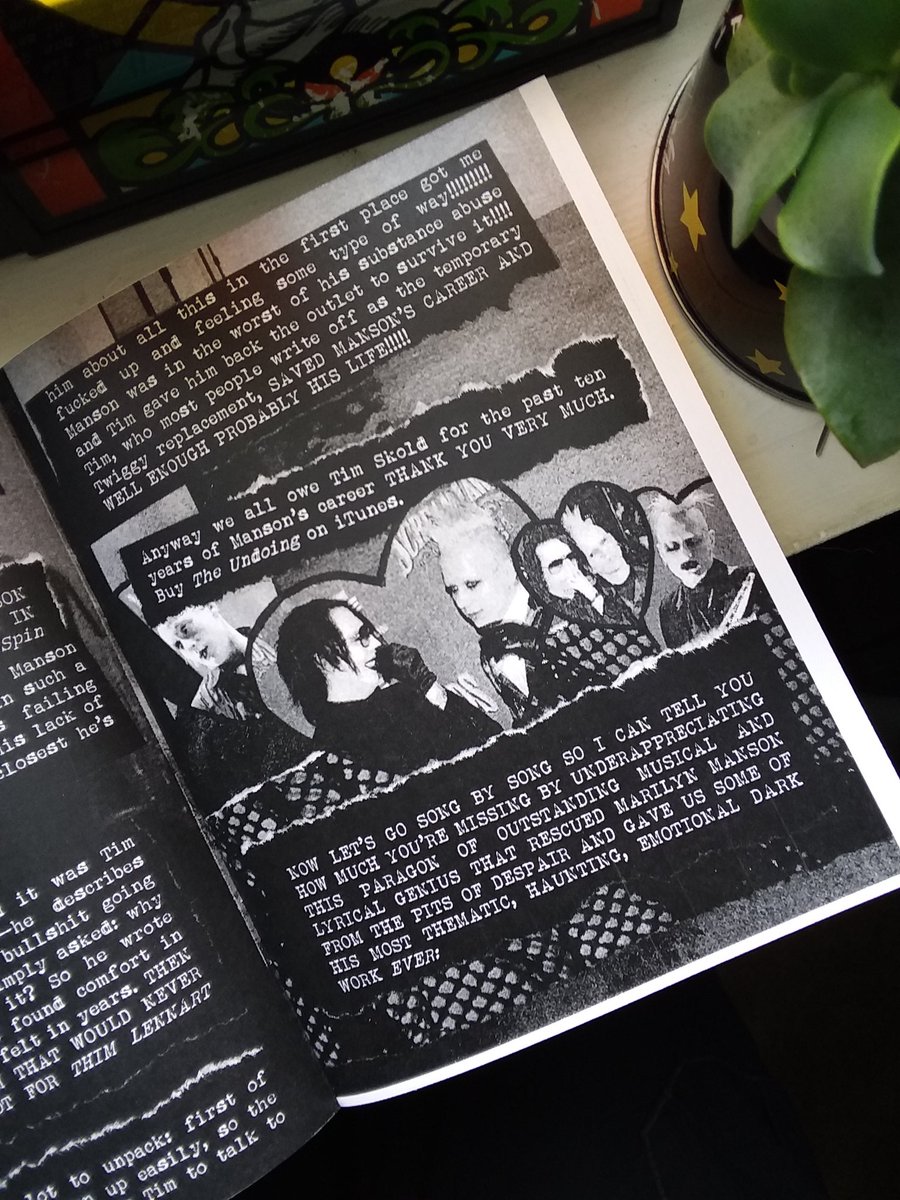 OOK
IN
Spin
Manson
n such a
s failing
is lack of
closest he's
d it was Tim
—he describes
bullshit going
mply asked: why
it? So he wrote
found comfort in
felt in years. THEN
N THAT WOULD NEVER
OT FOR THIM LENNART
lot to unpack: first of
n up easily, so the
Tim to talk to
him about all this in the first place got me
fucked up and feeling some type of way!!!!!!!!!
Manson was in the worst of his substance abuse
and Tim gave him back the outlet to survive it!!!!
Tim, who most people write off as the temporary
Twiggy replacement, SAVED MANSON'S CAREER AND
WELL ENOUGH PROBABLY HIS LIFE!!!!!
Anyway we all owe Tim Skold for the past ten
years of Manson's career THANK YOU VERY MUCH.
Buy The Undoing on iTunes.
NOW LET'S GO SONG BY SONG SO I CAN TELL YOU
HOW MUCH YOU'RE MISSING BY UNDERAPPRECIATING
THIS PARAGON OF OUTSTANDING MUSICAL AND
LYRICAL GENIUS THAT RESCUED MARILYN MANSON
FROM THE PITS OF DESPAIR AND GAVE US SOME OF
HIS MOST THEMATIC, HAUNTING, EMOTIONAL DARK
WORK EVER: